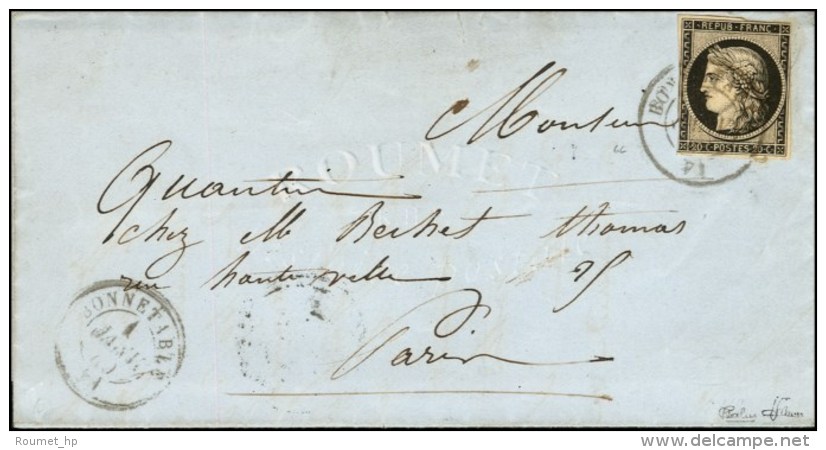 REPUB. FRANC.
20 C POSTES 20 C
Monsieur
Quantin
chez M Bechet thomas
rue hauteville 25
Paris
BONNETABLE
1
JANV.
ROUMET
Roumet_hp
delcampe.net